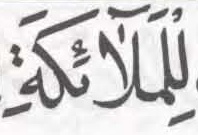 لِلْمَلَٰٓئِكَةِ